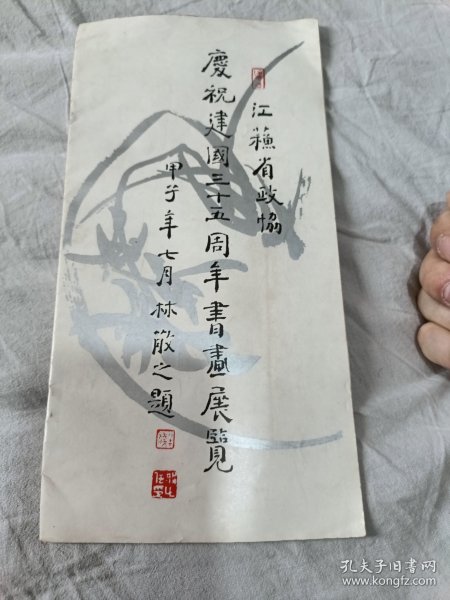 江蘇省政協
慶祝建國三十五周年書畫展覽
甲子年七月林散之題
孔夫子旧书网
www.kongfz.com